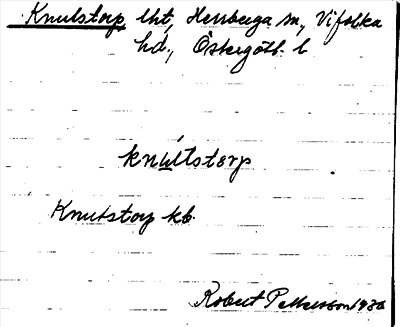 Knutstorp lht, Herrberga sn, Vifolka
hd., Östergötl. l.
knu̲ltstorp
Knutstorp kb.
Robert Pettersson 1930